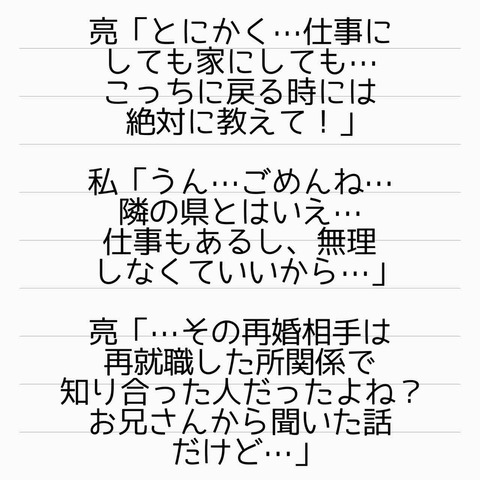 亮「とにかく…仕事に
しても家にしても…
こっちに戻る時には
絶対に教えて！」
私「うん…ごめんね…
隣の県とはいえ…
仕事もあるし、無理
しなくていいから…」
亮「…その再婚相手は
再就職した所関係で
知り合った人だったよね？
お兄さんから聞いた話
だけど…」